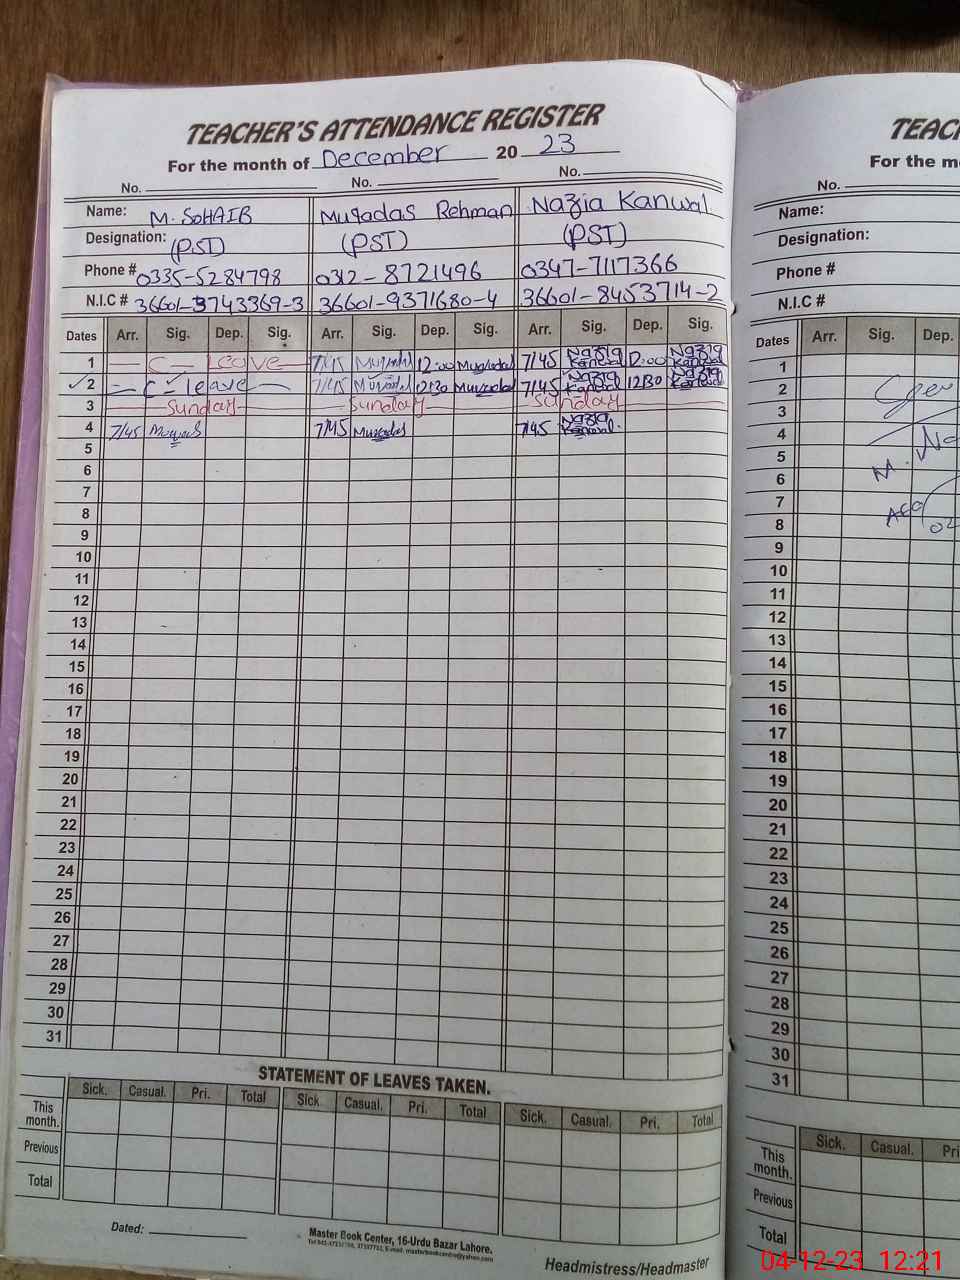 TEACHER'S ATTENDANCE REGISTER
For the month of December 20 23
No. No. No.
Name: M. SOHAIB Muqadas Rehman Nazia Kanwal
Designation: (PST) (PST) (PST)
Phone # 0335-5284798 0312-8721496 0347-7117366
N.I.C # 36601-3743369-3 36601-9371680-4 36601-8453714-2
Dates Arr. Sig. Dep. Sig. Arr. Sig. Dep. Sig. Arr. Sig. Dep. Sig.
1 C- Leave 7/45 Muqadas 12:00 Muqadas 7/45 Nazia Kanwal 12:00 Nazia Kanwal
2 - C - leave - 7/45 Muqadas 12:30 Muqadas 7/45 Nazia Kanwal 12:30 Nazia Kanwal
3 Sunday Sunday Sunday
4 7/45 7/45 Muqadas 7/45 Nazia Kanwal
5
6
7
8
9
10
11
12
13
14
15
16
17
18
19
20
21
22
23
24
25
26
27
28
29
30
31
STATEMENT OF LEAVES TAKEN.
Sick. Casual. Pri. Total Sick Casual. Pri. Total Sick. Casual. Pri. Total
This month.
Previous
Total
Dated:
Master Book Center, 16-Urdu Bazar Lahore.
Headmistress/Headmaster
TEAC
For the m
No.
Name:
Designation:
Phone #
N.I.C #
Dates Arr. Sig. Dep.
1
2
3
4
5
6
7
8
9
10
11
12
13
14
15
16
17
18
19
20
21
22
23
24
25
26
27
28
29
30
31
Sick. Casual. Pri
This month.
Previous
Total
04-12-23 12:21